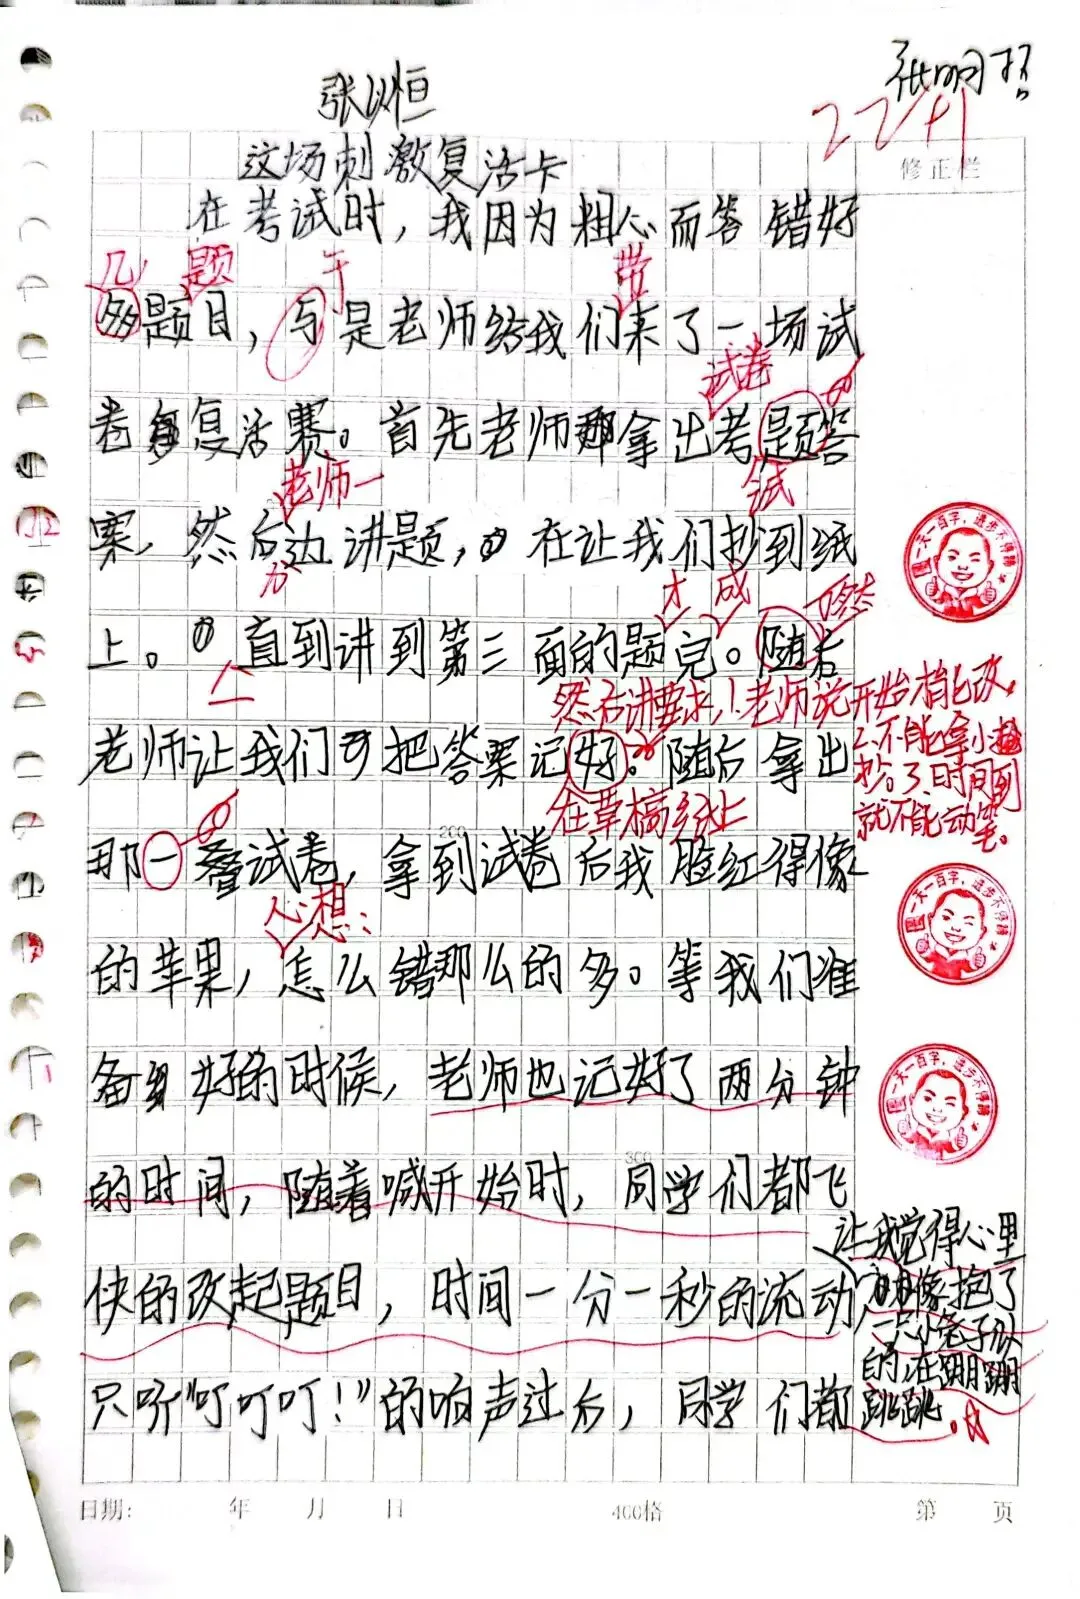 张以恒
22+1
修正栏
这场刺激复活卡
在考试时，我因为粗心而答错好
几 题 于 带
多题目，与是老师给我们来了一场试
试卷
卷复活赛。首先老师那拿出考题答
老师一 试
案，然后边讲题，在让我们抄到纸
一天一百字，进步不停蹄
才 成
上。直到讲到第三面的题完。随后
然后讲要求，1.老师说开始才能改，
2.不能拿小抄
抄。3.时间到
就不能动笔。
老师让我们可把答案记好。随后拿出
在草稿纸上
那一叠试卷，拿到试卷后我脸红得像
200
心想：
的苹果，怎么错那么的多。等我们准
一天一百字，进步不停蹄
备好的时候，老师也记好了两分钟
一天一百字，进步不停蹄
的时间，随着喊开始时，同学们都飞
300
快的改起题目，时间一分一秒的流动
让我觉得心里
像抱了
一只小兔子似
的在蹦蹦
跳跳。
只听“叮叮叮！”的响声过后，同学们都
日期： 年 月 日 400格 第 页